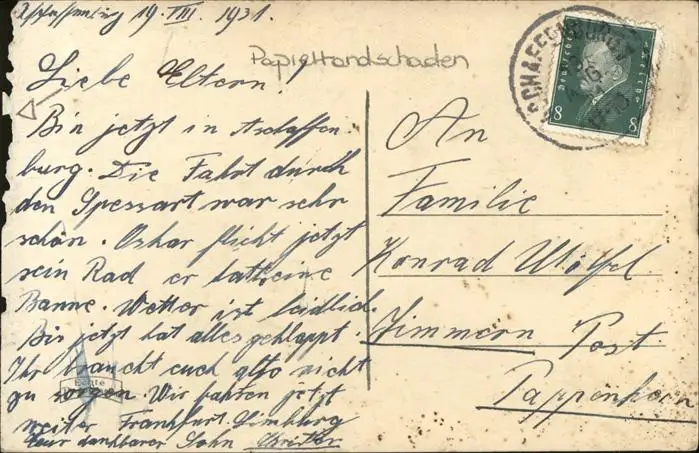 Aschaffenburg 19. VIII. 1931.
Papierrandschaden
Liebe Eltern!
Bin jetzt in Aschaffen-
burg. Die Fahrt durch
den Spessart war sehr
schön. Oskar flickt jetzt
sein Rad er hatte eine
Panne. Wetter ist leidlich.
Bis jetzt hat alles geklappt.
Ihr braucht euch also nicht
zu sorgen. Wir fahren jetzt
weiter Frankfurt. Limburg
Euer dankbarer Sohn
An
Familie
Konrad Wölfel
Zimmern Post
Pappenheim
ASCHAFFENBURG
Deutsches Reich
8 8
Echte